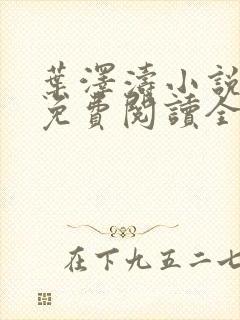 葉澤濤小說
免費閱讀全
在下九五二七